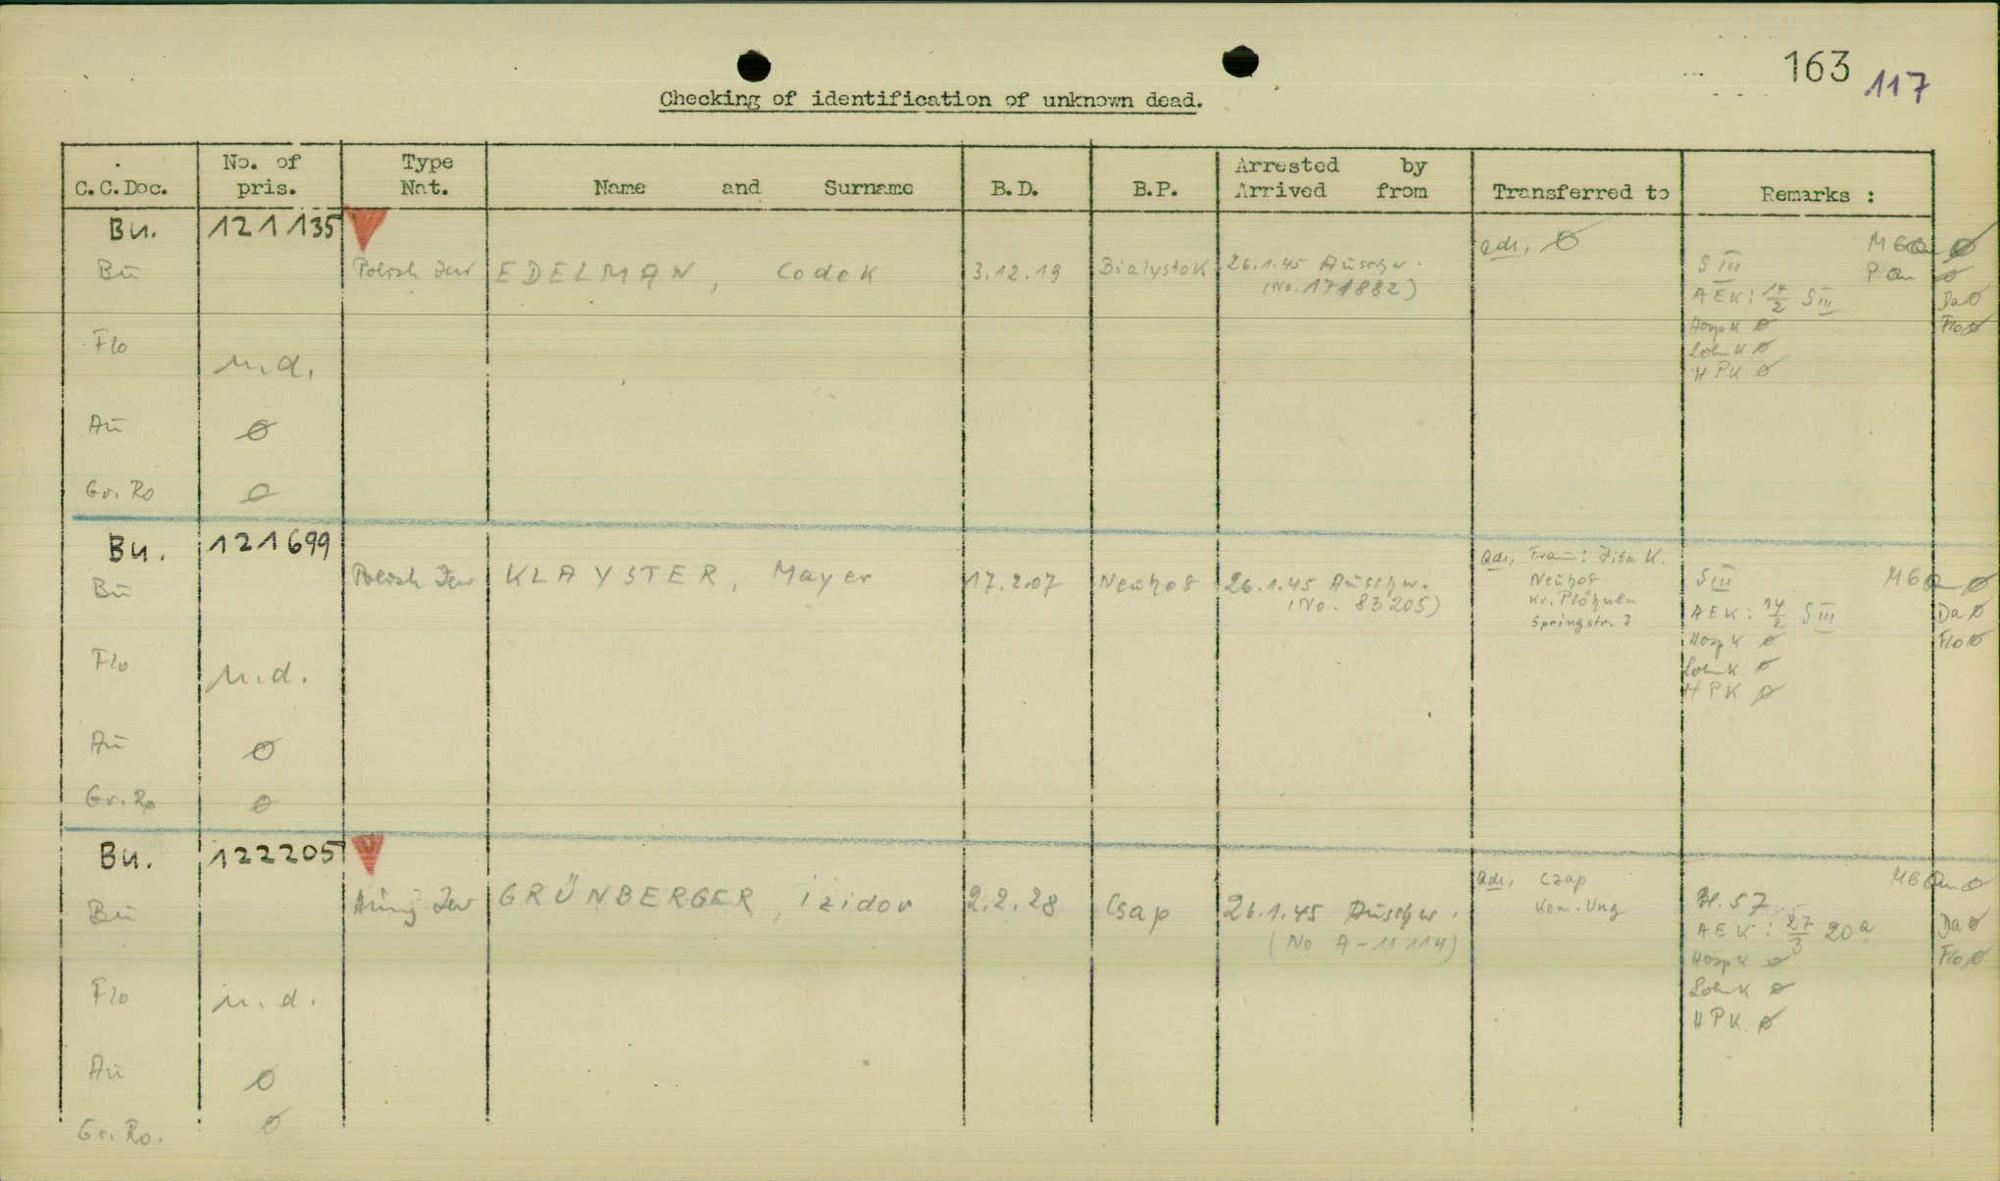 163 117
Checking of identification of unknown dead.
C.C.Doc. No. of pris. Type Nat. Name and Surname B.D. B.P. Arrested by Arrived from Transferred to Remarks :
Bu. 121135
Bu Polish Jew EDELMAN, Codek 3.12.19 Bialystok 26.1.45 Auschw. Adr. Ø S III
(No. 171882)
AEK: 14/2 S III Da Ø
Hosp K Ø Flo Ø
Flo n.d. Lohn K Ø
HPK Ø
Au Ø
Gr. Ro Ø
Bu. 121699
Bu Polish Jew KLAYSTER, Mayer 17.2.07 Neuhof 26.1.45 Auschw. Adr. Frau: Zita K. S III
(No. 83205) Neuhof
Kr. Plöhnen
Springstr. 3
AEK: 14/2 S III Da Ø
Hosp K Ø Flo Ø
Flo n.d. Lohn K Ø
HPK Ø
Au Ø
Gr. Ro Ø
Bu. 122205
Bu Hung Jew GRÜNBERGER, Izidor 2.2.28 Csap 26.1.45 Auschw. Adr. Czap Bl. 57
(No A-11114) Kom. Ung
AEK: 27/3 20a Da Ø
Hosp K Ø Flo Ø
Flo n.d. Lohn K Ø
HPK Ø
Au Ø
Gr. Ro. Ø